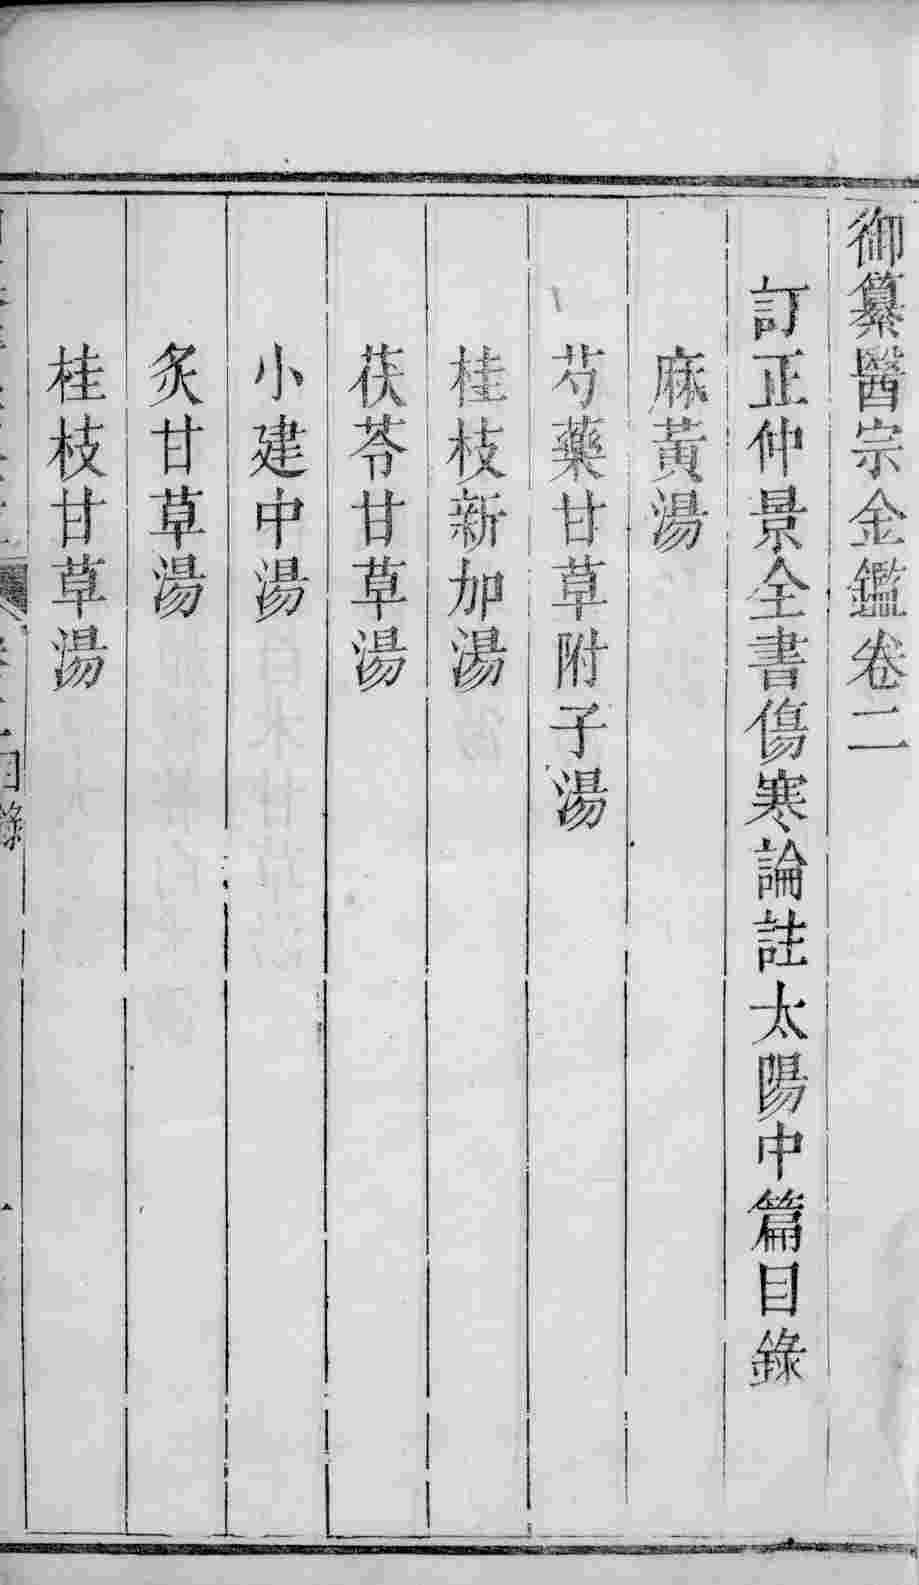 御纂醫宗金鑑卷二
訂正仲景全書傷寒論註太陽中篇目錄
麻黃湯
芍藥甘草附子湯
桂枝新加湯
茯苓甘草湯
小建中湯
炙甘草湯
桂枝甘草湯
目錄